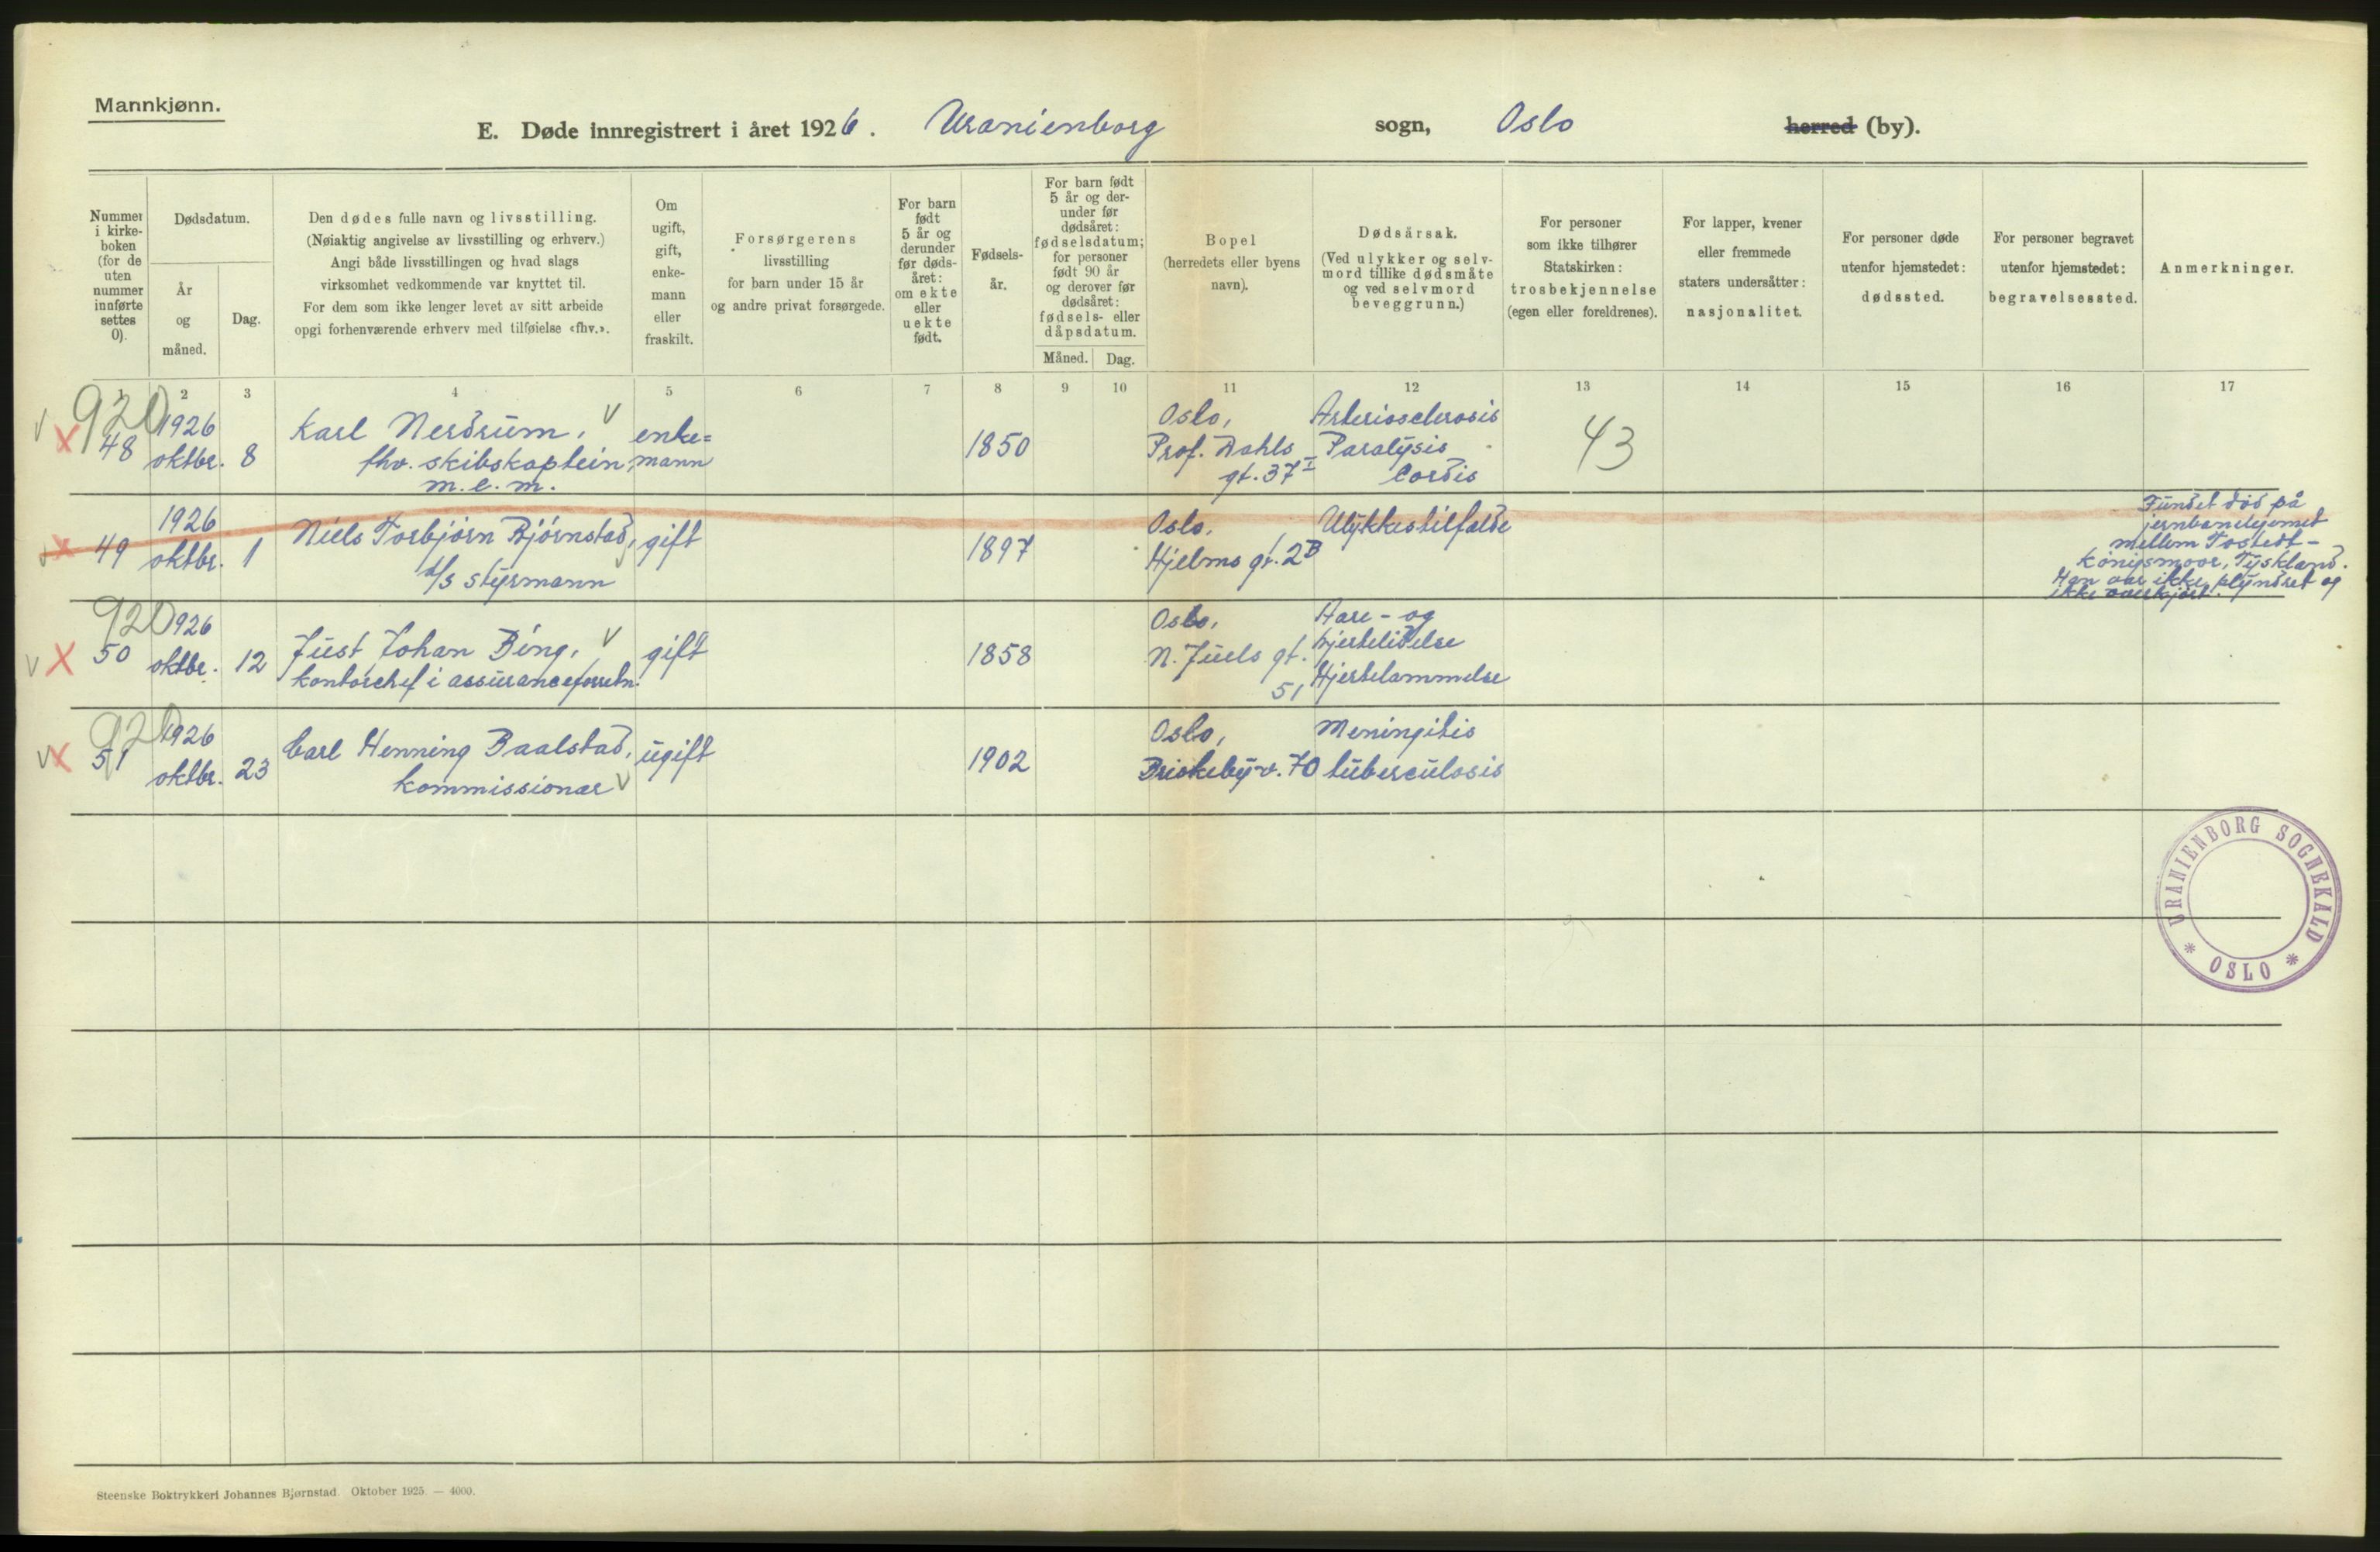 Mannkjønn.
E. Døde innregistrert i året 1926. Uranienborg sogn, Oslo herred (by).
Nummer
i kirke-
boken
(for de
uten
nummer
innførte
settes
0).
Dødsdatum.
År
og
måned.
Dag.
Den dødes fulle navn og livsstilling.
(Nøiaktig angivelse av livsstilling og erhverv.)
Angi både livsstillingen og hvad slags
virksomhet vedkommende var knyttet til.
For dem som ikke lenger levet av sitt arbeide
opgi forhenværende erhverv med tilføielse «fhv.».
Om
ugift,
gift,
enke-
mann
eller
fraskilt.
Forsørgerens
livsstilling
for barn under 15 år
og andre privat forsørgede.
For barn
født
5 år og
derunder
før døds-
året:
om ekte
eller
uekte
født.
Fødsels-
år.
For barn født
5 år og der-
under før
dødsåret:
fødselsdatum;
for personer
født 90 år
og derover før
dødsåret:
fødsels- eller
dåpsdatum.
Måned. Dag.
Bopel
(herredets eller byens
navn).
Dødsårsak.
(Ved ulykker og selv-
mord tillike dødsmåte
og ved selvmord
beveggrunn.)
For personer
som ikke tilhører
Statskirken:
trosbekjennelse
(egen eller foreldrenes).
For lapper, kvener
eller fremmede
staters undersåtter:
nasjonalitet.
For personer døde
utenfor hjemstedet:
dødssted.
For personer begravet
utenfor hjemstedet:
begravelsessted.
Anmerkninger.
1 2 3 4 5 6 7 8 9 10 11 12 13 14 15 16 17
920
48
1926
oktbr. 8
Karl Nerdrum,
fhv. skibskaptein,
m.c.m.
enke=
mann
1850
Oslo,
Prof. Dahls
gt. 37 I
Arteriosclerosis
Paralysis
Cordis
43
49
1926
oktbr. 1
Niels Torbjørn Bjørnstad,
d/s styrmann
gift
1897
Oslo,
Hjelms gt. 2B
Ulykkestilfælde
Fundet død på
jernbanelegemet
mellem Tostedt-
Königsmoor, Tyskland.
Han var ikke plyndret og
ikke overkjørt.
920
50
1926
oktbr. 12
Just Johan Bing,
kontorchef i assuranceforretn.
gift
1858
Oslo,
N. Juels gt.
51
Aare- og
hjertelidelse
Hjertelammelse
920
51
1926
oktbr. 23
Carl Henning Baalstad,
kommissionær
ugift
1902
Oslo,
Briskebyv. 70
Meningitis
tuberculosis
URANIENBORG SOGNEKALD
* OSLO *
Steenske Boktrykkeri Johannes Bjørnstad. Oktober 1925. — 4000.